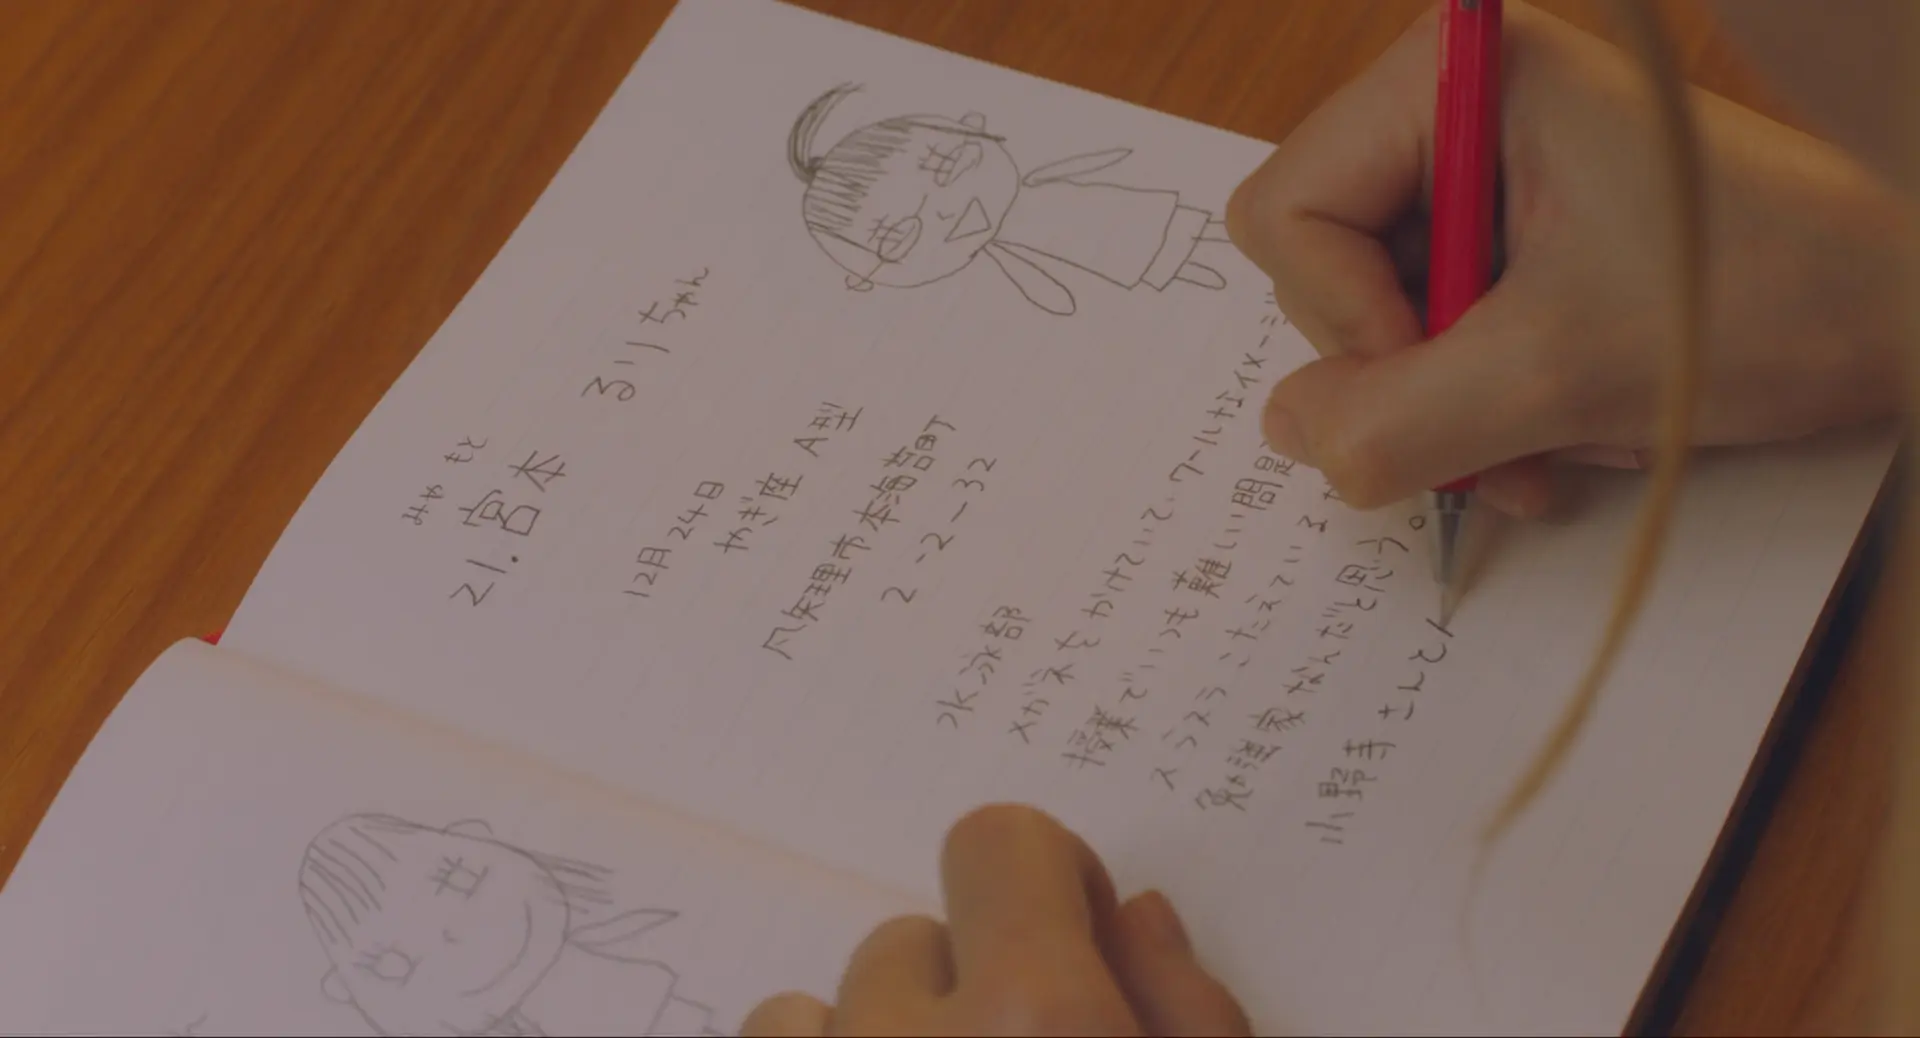 みやもと
21. 宮本 るりちゃん
12月24日
やぎ座 A型
八矢理市本海苔町
2-2-32
水泳部
メガネをかけていて、クールなイメージ
授業でいつも難しい問題
スラスラこたえている
勉強家なんだと思う。
小野寺さんと